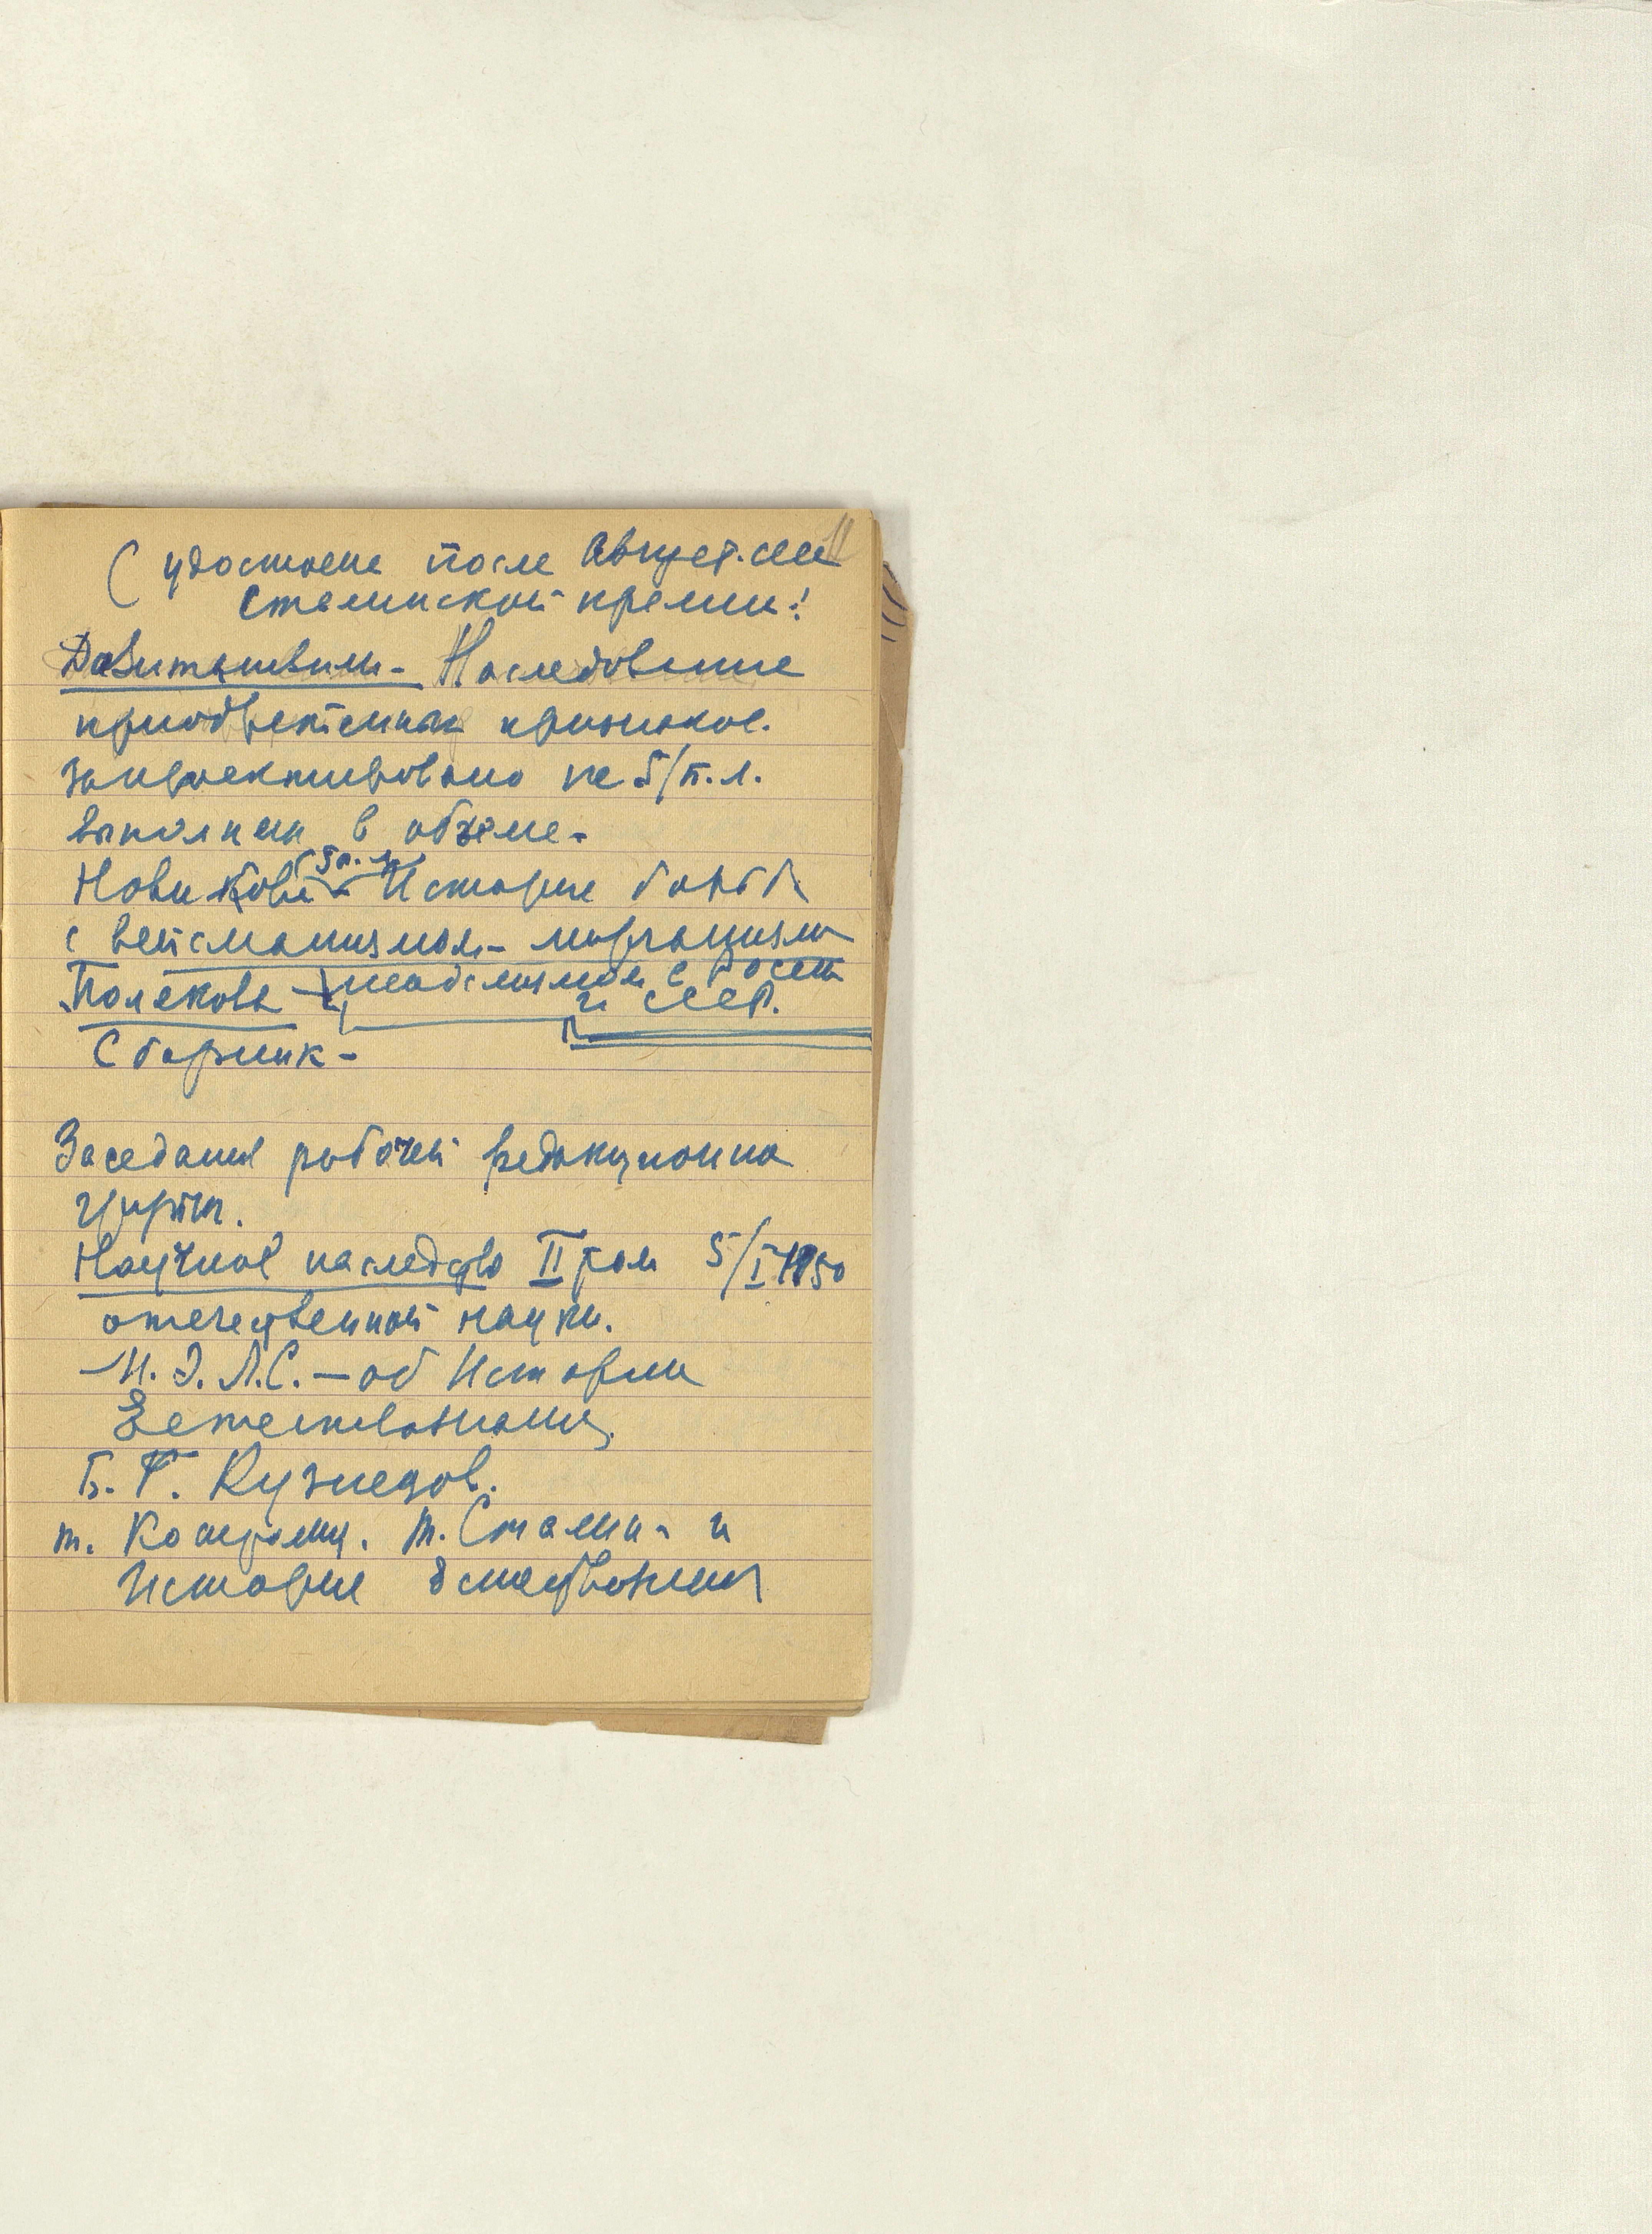 11
( удостоена после Август. сесс
Сталинской премии!
Давиташвили - Наследование
приобретенных признаков.
запроектировано не 5/п.л.
выполнен в объёме -
5 п.л.
Новиков - История борьб
с вейсманизмом - морганизмом
Полякова - и менделизмом в России
и СССР.
Сборник -
Заседания рабочей редакционно
группы.
Научное наследство II том 5/I 1950
отечественной науки.
- И. Э. Л. С. - об Истории
Естествознания.
Б. Г. Кузнецов.
т. Костроми. т. Сталин - и
История Естествознания